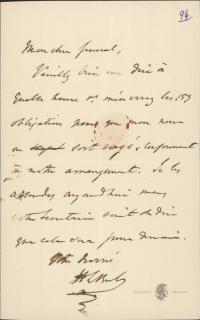 96
Mon cher général,
Veuillez bien me dire à
quelle heure vous m'enverrez les 153
obligations pour que mon nom
en soit rayé, conformément
à notre arrangement. Je les
attendais aujourd'hui mais
votre secrétaire vient de dire
que cela sera pour demain.
Votre dévoué